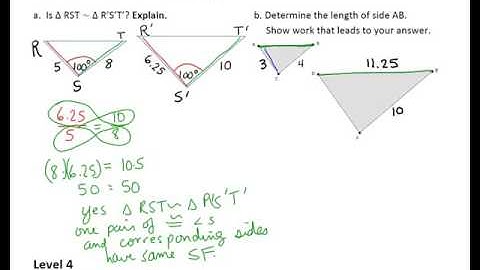 a. Is Δ RST ~ Δ R'S'T'? Explain.
b. Determine the length of side AB.
Show work that leads to your answer.
R T
5 100° 8
S
R' T'
6.25 100° 10
S'
3 4
11.25
10
6.25 = 10
5 8
(8)(6.25) = 10·5
50 = 50
yes Δ RST ~ Δ R'S'T'
one pair of ≅ ∠s
and corresponding sides
have same SF.
Level 4